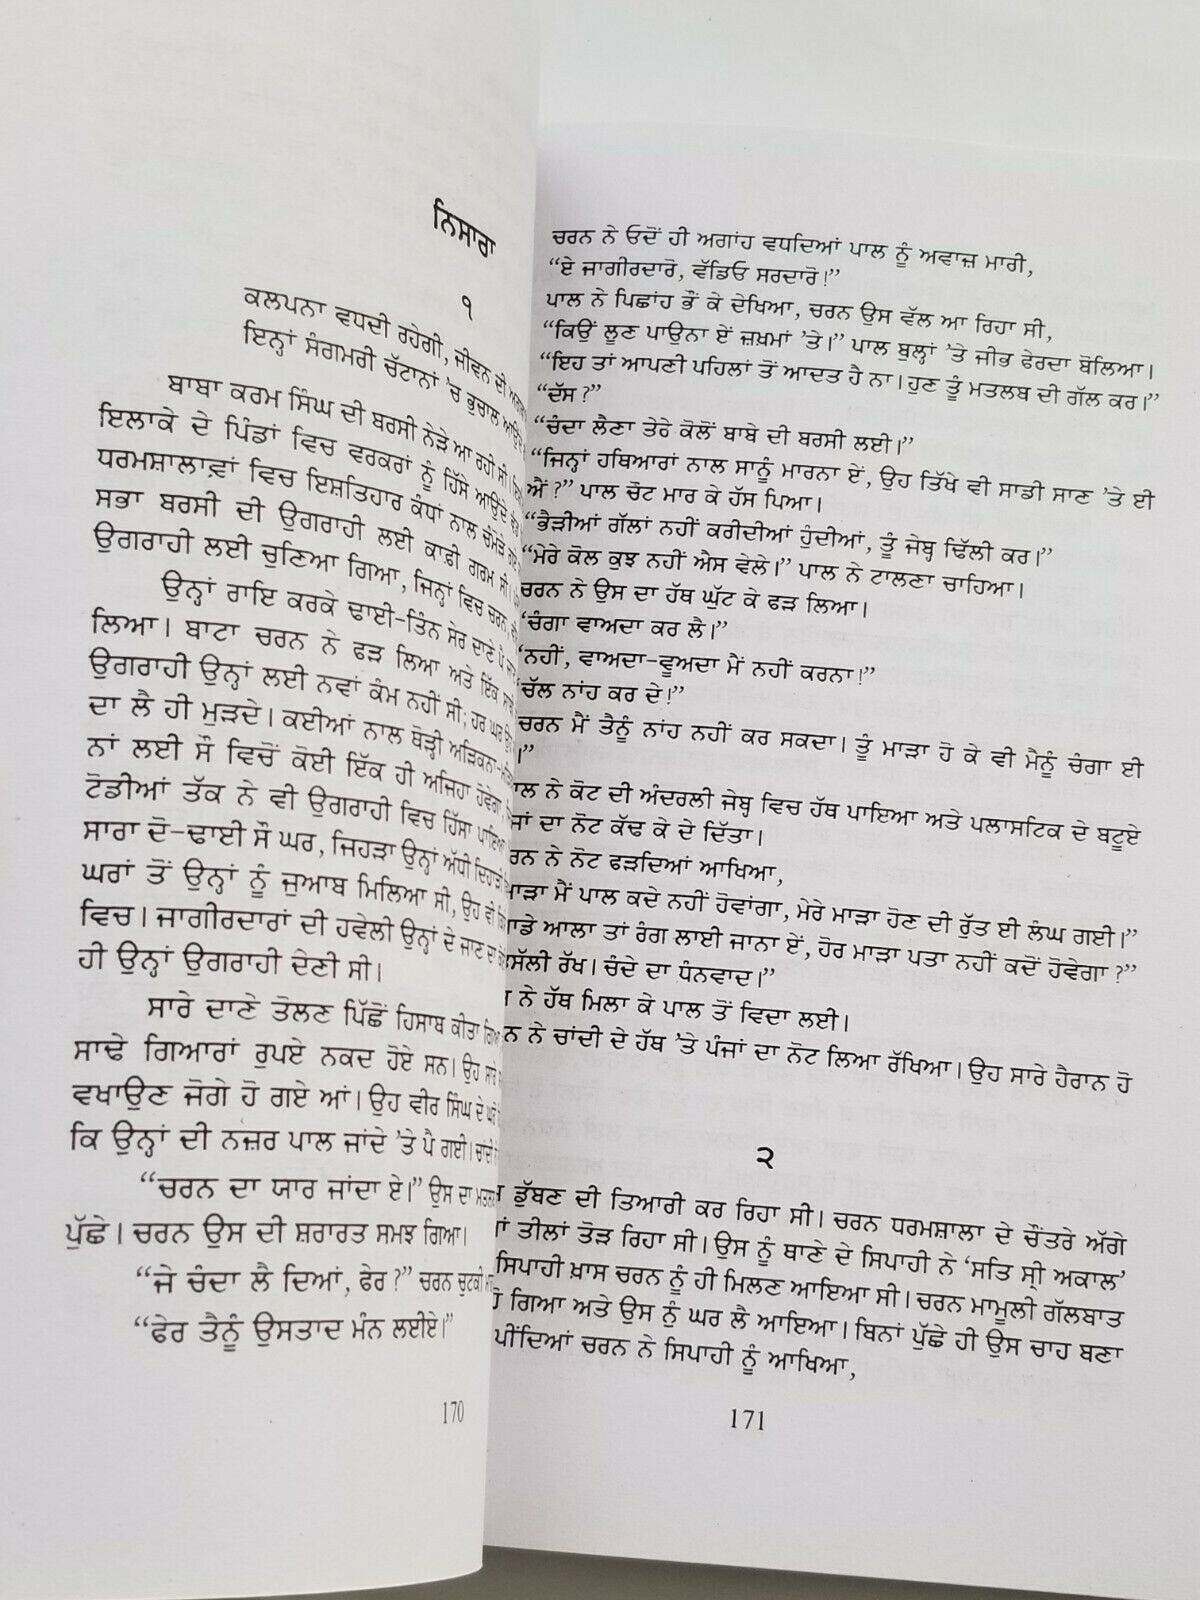 ਨਿਸਾਰਾ
੧
ਕਲਪਨਾ ਵਧਦੀ ਰਹੇਗੀ, ਜੀਵਨ ਦੀ
ਇਨ੍ਹਾਂ ਸੰਗਮਰੀ ਚੱਟਾਨਾਂ ’ਚ ਭੁਚਾਲ ਆਉਂਦੇ
ਬਾਬਾ ਕਰਮ ਸਿੰਘ ਦੀ ਬਰਸੀ ਨੇੜੇ ਆ ਰਹੀ ਸੀ।
ਇਲਾਕੇ ਦੇ ਪਿੰਡਾਂ ਵਿਚ ਵਰਕਰਾਂ ਨੂੰ ਹਿੱਸੇ ਆਉਂਦੇ
ਧਰਮਸ਼ਾਲਾਵਾਂ ਵਿਚ ਇਸ਼ਤਿਹਾਰ ਕੰਧਾਂ ਨਾਲ ਚੰਮੋੜੇ ਗਏ
ਸਭਾ ਬਰਸੀ ਦੀ ਉਗਰਾਹੀ ਲਈ ਕਾਫ਼ੀ ਗਰਮ ਸੀ।
ਉਗਰਾਹੀ ਲਈ ਚੁਣਿਆ ਗਿਆ, ਜਿਨ੍ਹਾਂ ਵਿਚ ਚਰਨ,
ਉਨ੍ਹਾਂ ਰਾਇ ਕਰਕੇ ਢਾਈ-ਤਿੰਨ ਸੇਰ ਦਾਣੇ ਪੈ
ਲਿਆ। ਬਾਟਾ ਚਰਨ ਨੇ ਫੜ ਲਿਆ ਅਤੇ ਇੱਕ
ਉਗਰਾਹੀ ਉਨ੍ਹਾਂ ਲਈ ਨਵਾਂ ਕੰਮ ਨਹੀਂ ਸੀ; ਹਰ ਘਰ
ਦਾ ਲੈ ਹੀ ਮੁੜਦੇ। ਕਈਆਂ ਨਾਲ ਥੋੜ੍ਹੀ
ਨਾਂ ਲਈ ਸੌ ਵਿਚੋਂ ਕੋਈ ਇੱਕ ਹੀ ਅਜਿਹਾ ਹੋਵੇਗਾ,
ਟੋਡੀਆਂ ਤੱਕ ਨੇ ਵੀ ਉਗਰਾਹੀ ਵਿਚ ਹਿੱਸਾ ਪਾਇਆ
ਸਾਰਾ ਦੋ-ਢਾਈ ਸੌ ਘਰ, ਜਿਹੜਾ ਉਨ੍ਹਾਂ ਅੱਧੀ ਦਿਹਾੜੀ
ਘਰਾਂ ਤੋਂ ਉਨ੍ਹਾਂ ਨੂੰ ਜੁਆਬ ਮਿਲਿਆ ਸੀ, ਉਹ ਵੀ
ਵਿਚ। ਜਾਗੀਰਦਾਰਾਂ ਦੀ ਹਵੇਲੀ ਉਨ੍ਹਾਂ ਦੇ ਜਾਣ ਦਾ
ਹੀ ਉਨ੍ਹਾਂ ਉਗਰਾਹੀ ਦੇਣੀ ਸੀ।
ਸਾਰੇ ਦਾਣੇ ਤੋਲਣ ਪਿੱਛੋਂ ਹਿਸਾਬ ਕੀਤਾ
ਸਾਢੇ ਗਿਆਰਾਂ ਰੁਪਏ ਨਕਦ ਹੋਏ ਸਨ। ਉਹ ਸਾਰੇ
ਵਖਾਉਣ ਜੋਗੇ ਹੋ ਗਏ ਆਂ। ਉਹ ਵੀਰ ਸਿੰਘ ਦੇ ਘਰੋਂ
ਕਿ ਉਨ੍ਹਾਂ ਦੀ ਨਜ਼ਰ ਪਾਲ ਜਾਂਦੇ ’ਤੇ ਪੈ ਗਈ। ਚਾਂਦੀ
“ਚਰਨ ਦਾ ਯਾਰ ਜਾਂਦਾ ਏ।” ਉਸ ਦਾ
ਪੁੱਛੇ। ਚਰਨ ਉਸ ਦੀ ਸ਼ਰਾਰਤ ਸਮਝ ਗਿਆ।
“ਜੇ ਚੰਦਾ ਲੈ ਦਿਆਂ, ਫੇਰ?” ਚਰਨ ਚੁਟਕੀ
“ਫੇਰ ਤੈਨੂੰ ਉਸਤਾਦ ਮੰਨ ਲਈਏ।”
170
ਚਰਨ ਨੇ ਓਦੋਂ ਹੀ ਅਗਾਂਹ ਵਧਦਿਆਂ ਪਾਲ ਨੂੰ ਅਵਾਜ਼ ਮਾਰੀ,
“ਏ ਜਾਗੀਰਦਾਰੋ, ਵੱਡਿਓ ਸਰਦਾਰੋ!”
ਪਾਲ ਨੇ ਪਿਛਾਂਹ ਭੌਂ ਕੇ ਦੇਖਿਆ, ਚਰਨ ਉਸ ਵੱਲ ਆ ਰਿਹਾ ਸੀ,
“ਕਿਉਂ ਲੂਣ ਪਾਉਨਾ ਏਂ ਜ਼ਖ਼ਮਾਂ ’ਤੇ।” ਪਾਲ ਬੁਲ੍ਹਾਂ ’ਤੇ ਜੀਭ ਫੇਰਦਾ ਬੋਲਿਆ।
“ਇਹ ਤਾਂ ਆਪਣੀ ਪਹਿਲਾਂ ਤੋਂ ਆਦਤ ਹੈ ਨਾ। ਹੁਣ ਤੂੰ ਮਤਲਬ ਦੀ ਗੱਲ ਕਰ।”
“ਦੱਸ?”
“ਚੰਦਾ ਲੈਣਾ ਤੇਰੇ ਕੋਲੋਂ ਬਾਬੇ ਦੀ ਬਰਸੀ ਲਈ।”
“ਜਿਨ੍ਹਾਂ ਹਥਿਆਰਾਂ ਨਾਲ ਸਾਨੂੰ ਮਾਰਨਾ ਏਂ, ਉਹ ਤਿੱਖੇ ਵੀ ਸਾਡੀ ਸਾਣ ’ਤੇ ਈ
ਐਂ?” ਪਾਲ ਚੋਟ ਮਾਰ ਕੇ ਹੱਸ ਪਿਆ।
“ਭੈੜੀਆਂ ਗੱਲਾਂ ਨਹੀਂ ਕਰੀਦੀਆਂ ਹੁੰਦੀਆਂ, ਤੂੰ ਜੇਬ੍ਹ ਢਿੱਲੀ ਕਰ।”
“ਮੇਰੇ ਕੋਲ ਕੁਝ ਨਹੀਂ ਐਸ ਵੇਲੇ।” ਪਾਲ ਨੇ ਟਾਲਣਾ ਚਾਹਿਆ।
ਚਰਨ ਨੇ ਉਸ ਦਾ ਹੱਥ ਘੁੱਟ ਕੇ ਫੜ ਲਿਆ।
‘ਚੰਗਾ ਵਾਅਦਾ ਕਰ ਲੈ।”
‘ਨਹੀਂ, ਵਾਅਦਾ-ਵੂਅਦਾ ਮੈਂ ਨਹੀਂ ਕਰਨਾ!”
‘ਚੱਲ ਨਾਂਹ ਕਰ ਦੇ!”
ਚਰਨ ਮੈਂ ਤੈਨੂੰ ਨਾਂਹ ਨਹੀਂ ਕਰ ਸਕਦਾ। ਤੂੰ ਮਾੜਾ ਹੋ ਕੇ ਵੀ ਮੈਨੂੰ ਚੰਗਾ ਈ
।”
ਾਲ ਨੇ ਕੋਟ ਦੀ ਅੰਦਰਲੀ ਜੇਬ੍ਹ ਵਿਚ ਹੱਥ ਪਾਇਆ ਅਤੇ ਪਲਾਸਟਿਕ ਦੇ ਬਟੂਏ
ਜਾਂ ਦਾ ਨੋਟ ਕੱਢ ਕੇ ਦੇ ਦਿੱਤਾ।
ਰਨ ਨੇ ਨੋਟ ਫੜਦਿਆਂ ਆਖਿਆ,
ਮਾੜਾ ਮੈਂ ਪਾਲ ਕਦੇ ਨਹੀਂ ਹੋਵਾਂਗਾ, ਮੇਰੇ ਮਾੜਾ ਹੋਣ ਦੀ ਰੁੱਤ ਈ ਲੰਘ ਗਈ।”
ਆਲਾ ਤਾਂ ਰੰਗ ਲਾਈ ਜਾਨਾ ਏਂ, ਹੋਰ ਮਾੜਾ ਪਤਾ ਨਹੀਂ ਕਦੋਂ ਹੋਵੇਗਾ?”
ਸੱਲੀ ਰੱਖ। ਚੰਦੇ ਦਾ ਧੰਨਵਾਦ।”
ਨੇ ਹੱਥ ਮਿਲਾ ਕੇ ਪਾਲ ਤੋਂ ਵਿਦਾ ਲਈ।
ਨ ਨੇ ਚਾਂਦੀ ਦੇ ਹੱਥ ’ਤੇ ਪੰਜਾਂ ਦਾ ਨੋਟ ਲਿਆ ਰੱਖਿਆ। ਉਹ ਸਾਰੇ ਹੈਰਾਨ ਹੋ
੨
ਡੁੱਬਣ ਦੀ ਤਿਆਰੀ ਕਰ ਰਿਹਾ ਸੀ। ਚਰਨ ਧਰਮਸ਼ਾਲਾ ਦੇ ਚੌਂਤਰੇ ਅੱਗੇ
ਤੀਲਾਂ ਤੋੜ ਰਿਹਾ ਸੀ। ਉਸ ਨੂੰ ਥਾਣੇ ਦੇ ਸਿਪਾਹੀ ਨੇ ‘ਸਤਿ ਸ੍ਰੀ ਅਕਾਲ’
ਸਿਪਾਹੀ ਖ਼ਾਸ ਚਰਨ ਨੂੰ ਹੀ ਮਿਲਣ ਆਇਆ ਸੀ। ਚਰਨ ਮਾਮੂਲੀ ਗੱਲਬਾਤ
ਹੋ ਗਿਆ ਅਤੇ ਉਸ ਨੂੰ ਘਰ ਲੈ ਆਇਆ। ਬਿਨਾਂ ਪੁੱਛੇ ਹੀ ਉਸ ਚਾਹ ਬਣਾ
ਪੀਂਦਿਆਂ ਚਰਨ ਨੇ ਸਿਪਾਹੀ ਨੂੰ ਆਖਿਆ,
171